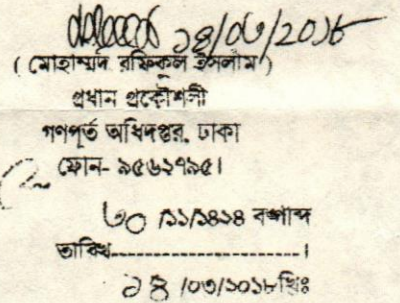 ১৪/০৩/২০১৮
( মোহাম্মদ রফিকুল ইসলাম )
প্রধান প্রকৌশলী
গণপূর্ত অধিদপ্তর, ঢাকা
ফোন- ৯৫৬২৭৯৫।
৩০ /১১/১৪২৪ বঙ্গাব্দ
তারিখ------------------------।
১৪ /০৩/২০১৮খ্রিঃ